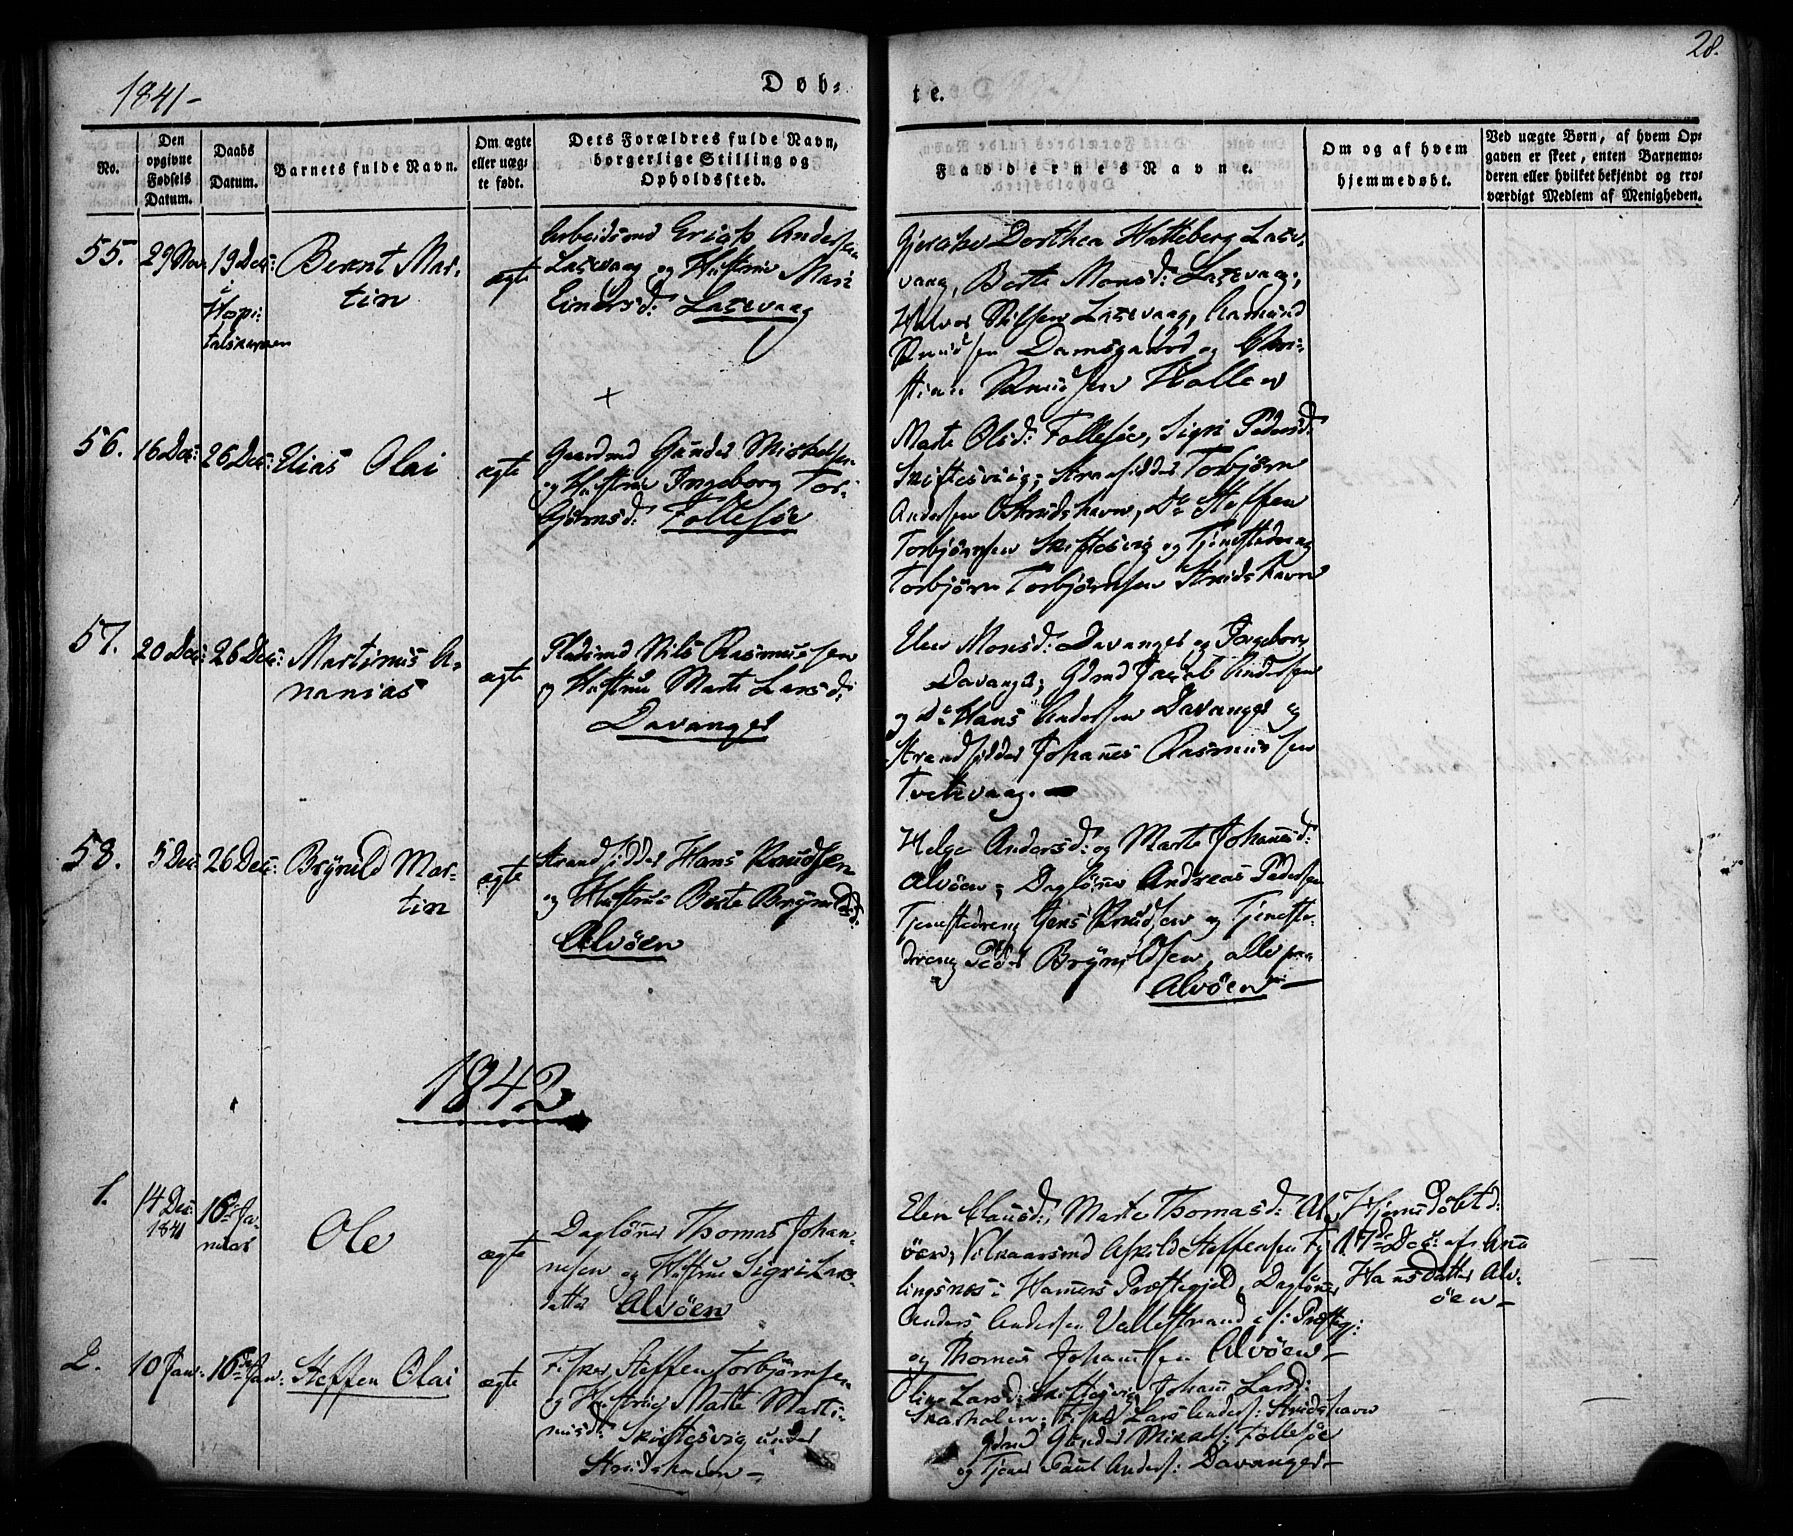 1841-
Døb-
te.
28.
No.
Den opgivne Fødsels Datum.
Daabs Datum.
Barnets fulde Navn.
Om ægte eller uægte født.
Dets Forældres fulde Navn, borgerlige Stilling og Opholdssted.
Faddernes Navne.
Om og af hvem hjemmedøbt.
Ved uægte Børn, af hvem Opgaven er skeet, enten Barnemoderen eller hvilket bekjendt og troværdigt Medlem af Menigheden.
55.
29 Nov:
19 Dec:
i Hospi-
talskirken
Bernt Mar-
tin
ægte
Arbeidsmd Erich Andersen
Laxevaag og Hustrue Mari
Einersd: Laxevaag
Dorthea Hatteberg Laxe-
vaag, Berte Monsd: Laxevaag,
Halvor Nilsen Laxevaag, Aamund
Knudsen Damsgaard og Chri-
stian Knudsen Hollen
56.
16 Dec:
26 Dec:
Elias Olai
ægte
Gaardmd Gunder Mickelsen
og Hustrue Ingeborg Tor-
bjørnsd: Follesøe
Marte Olsd: Follesøe, Sigri Pedersd:
Skiftesviig, Strandsidder Torbjørn
Andersen Strudshavn, Do Steffen
Torbjørnsen Skiftesvig og Tjenestedreng
Torbjørn Torbjørnsen Strudshavn
57.
20 Dec:
26 Dec:
Martinus A-
nanias
ægte
Pladsmd Nils Rasmussen
og Hustrue Marte Larsd:
Davanger
Elen Monsd: Davanger og Ingeborg
Davanger, Gdmd Jacob Andersen
og Do Hans Andersen Davanger og
Strandsidder Johanes Rasmussen
Tvetevaag.
58.
5 Dec
26 Dec:
Brynild Mar-
tin
ægte
Strandsidder Hans Knudsen
og Hustrue Berte Brynildsd:
Alvöen
Helge Andersd: og Marte Johannesd:
Alvöen, Daglönner Andreas Pedersen
Tjenestedreng Jens Knudsen og Tjeneste-
dreng Peder Brynildsen, alle paa
Alvöen
1842
1.
14 Dec:
1841
16de Ja-
nuar
Ole
ægte
Daglöner Thomas Johan-
nesen og Hustrue Sigri Lars-
datter Alvöen
Elen Clausd:, Marte Thomasd: Al-
vöen, Vilkaarsmd Askild Steffensen Fyl-
lingsnæs i Hamers Præstegjeld, Daglöner
Anders Andersen Vallestrand i s: Præstgj:
og Thomas Johannesen Alvöen
Hjemmedöbt d:
17de Dec: af Anna
Hansdatter Alv-
öen
2.
10 Jan:
16de Jan:
Steffen Olai
ægte
Fisker Steffen Torbjørnsen
og Hustrue Marte Marti-
nusd: Skiftesvig under
Strudshavn
Oline Larsd: Skiftesvig, Johanna Larsd:
Skarholmen, Lars Anders: Strudshavn
Gdmd Gunder Mikkels: Follesøe
og Tjener Paul Anders: Davanger